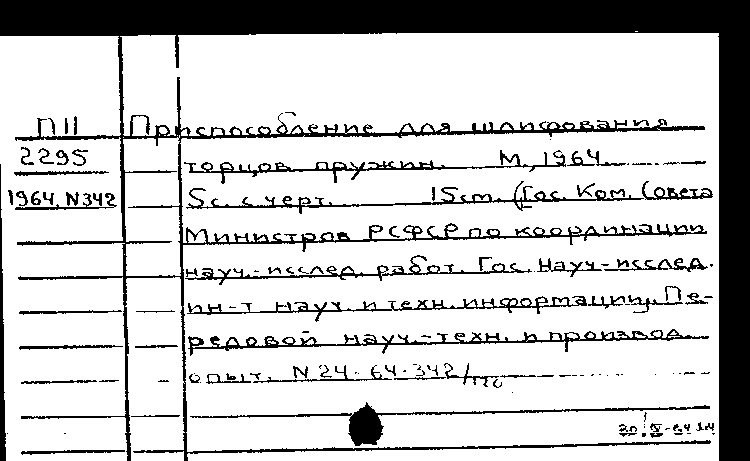 П11 Приспособление для шлифования
2295 торцов пружин. М., 1964.
1964, N342 5с. с черт. 15см. (Гос. Ком. Совета
Министров РСФСР по координации
науч.-исслед. работ. Гос. Науч-исслед.
ин-т науч. и техн. информации. Пе-
редовой науч.-техн. и производ.
опыт. N 24-64-342/